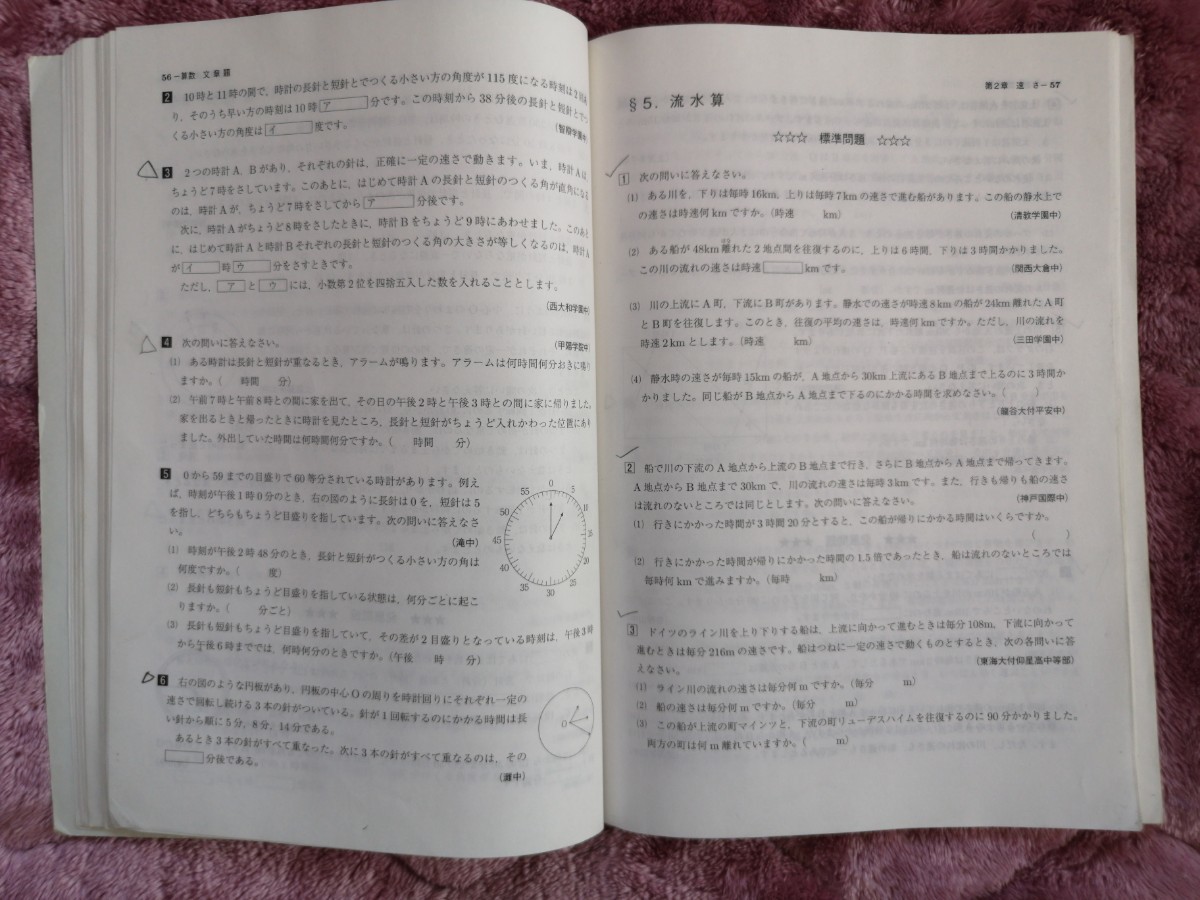 56－算数 文章題
2 10時と11時の間で，時計の長針と短針とでつくる小さい方の角度が115度になる時刻は2回
り，そのうち早い方の時刻は10時 ア 分です。この時刻から38分後の長針と短針とで
くる小さい方の角度は イ 度です。
(智辯学園中
3 2つの時計A，Bがあり，それぞれの針は，正確に一定の速さで動きます。いま，時計Aは，
ちょうど7時をさしています。このあとに，はじめて時計Aの長針と短針のつくる角が直角になる
のは，時計Aが，ちょうど7時をさしてから ア 分後です。
次に，時計Aがちょうど8時をさしたときに，時計Bをちょうど9時にあわせました。このあと
に，はじめて時計Aと時計Bそれぞれの長針と短針のつくる角の大きさが等しくなるのは，時計A
が イ 時 ウ 分をさすときです。
ただし， ア と ウ には，小数第2位を四捨五入した数を入れることとします。
(西大和学園中
4 次の問いに答えなさい。
(甲陽学院中
(1) ある時計は長針と短針が重なるとき，アラームが鳴ります。アラームは何時間何分おきに鳴り
ますか。( 時間 分)
(2) 午前7時と午前8時との間に家を出て，その日の午後2時と午後3時との間に家に帰りました。
家を出るときと帰ったときに時計を見たところ，長針と短針がちょうど入れかわった位置にあり
ました。外出していた時間は何時間何分ですか。( 時間 分)
5 0から59までの目盛りで60等分されている時計があります。例え
ば，時刻が午後1時0分のとき，右の図のように長針は0を，短針は5
を指し，どちらもちょうど目盛りを指しています。次の問いに答えなさ
い。
(滝中)
(1) 時刻が午後2時48分のとき，長針と短針がつくる小さい方の角は
何度ですか。( 度)
(2) 長針も短針も目盛りを指している状態は，何分ごとに起こ
りますか。( 分ごと)
(3) 長針も短針もちょうど目盛りを指していて，その差が2目盛りとなっている時刻は，午後3時
から午後6時まででは，何時何分のときですか。(午後 時 分)
0
5
10
15
20
25
30
35
40
45
50
55
6 右の図のような円板があり，円板の中心Oの周りを時計回りにそれぞれ一定の
速さで回転し続ける3本の針がついている。針が1回転するのにかかる時間は長
い針から順に5分，8分，14分である。
あるとき3本の針がすべて重なった。次に3本の針がすべて重なるのは，その
分後である。
(灘中)
O
第2章 速 さ－57
§5．流水算
☆☆☆ 標準問題 ☆☆☆
1 次の問いに答えなさい。
(1) ある川を，下りは毎時16km，上りは毎時7kmの速さで進む船があります。この船の静水上で
の速さは時速何kmですか。(時速 km)
(清教学園中)
(2) ある船が48km離れた2地点間を往復するのに，上りは6時間，下りは3時間かかりました。
この川の流れの速さは時速 kmです。
(関西大倉中)
(3) 川の上流にA町，下流にB町があります。静水での速さが時速8kmの船が24km離れたA町
とB町を往復します。このとき，往復の平均の速さは，時速何kmですか。ただし，川の流れを
時速2kmとします。(時速 km)
(三田学園中)
(4) 静水時の速さが毎時15kmの船が，A地点から30km上流にあるB地点まで上るのに3時間か
かりました。同じ船がB地点からA地点まで下るのにかかる時間を求めなさい。( )
(龍谷大付平安中)
2 船で川の下流のA地点から上流のB地点まで行き，さらにB地点からA地点まで帰ってきます。
A地点からB地点まで30kmで，川の流れの速さは毎時3kmです。また，行きも帰りも船の速さ
は流れのないところでは同じとします。次の問いに答えなさい。
(神戸国際中)
(1) 行きにかかった時間が3時間20分とすると，この船が帰りにかかる時間はいくらですか。
( )
(2) 行きにかかった時間が帰りにかかった時間の1.5倍であったとき，船は流れのないところでは
毎時何kmで進みますか。(毎時 km)
3 ドイツのライン川を上り下りする船は，上流に向かって進むときは毎分108m，下流に向かって
進むときは毎分216mの速さです。船はつねに一定の速さで動くものとするとき，次の各問いに答
えなさい。
(東海大付仰星高中等部)
(1) ライン川の流れの速さは毎分何mですか。(毎分 m)
(2) 船の速さは毎分何mですか。(毎分 m)
(3) この船が上流の町マインツと，下流の町リューデスハイムを往復するのに90分かかりました。
両方の町は何m離れていますか。( m)